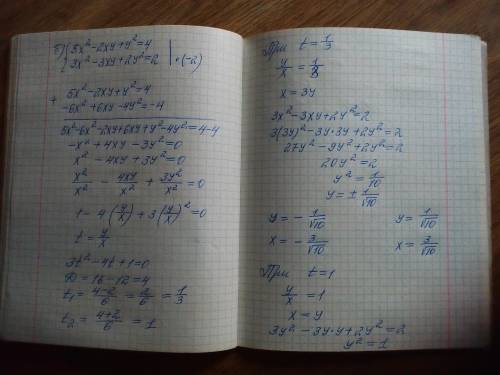 б) { 5x² - 2xy + y² = 4
{ 3x² - 3xy + 2y² = 2 | · (-2)
+ 5x² - 2xy + y² = 4
-6x² + 6xy - 4y² = -4
5x² - 6x² - 2xy + 6xy + y² - 4y² = 4 - 4
-x² + 4xy - 3y² = 0
x² - 4xy + 3y² = 0
x²/x² - 4xy/x² + 3y²/x² = 0
1 - 4(y/x) + 3(y/x)² = 0
t = y/x
3t² - 4t + 1 = 0
D = 16 - 12 = 4
t₁ = (4-2)/6 = 2/6 = 1/3
t₂ = (4+2)/6 = 1
При t = 1/3
y/x = 1/3
x = 3y
3x² - 3xy + 2y² = 2
3(3y)² - 3y · 3y + 2y² = 2
27y² - 9y² + 2y² = 2
20y² = 2
y² = 1/10
y = ± 1/√10
y = - 1/√10 y = 1/√10
x = - 3/√10 x = 3/√10
При t = 1
y/x = 1
x = y
3y² - 3y · y + 2y² = 2
y² = 1